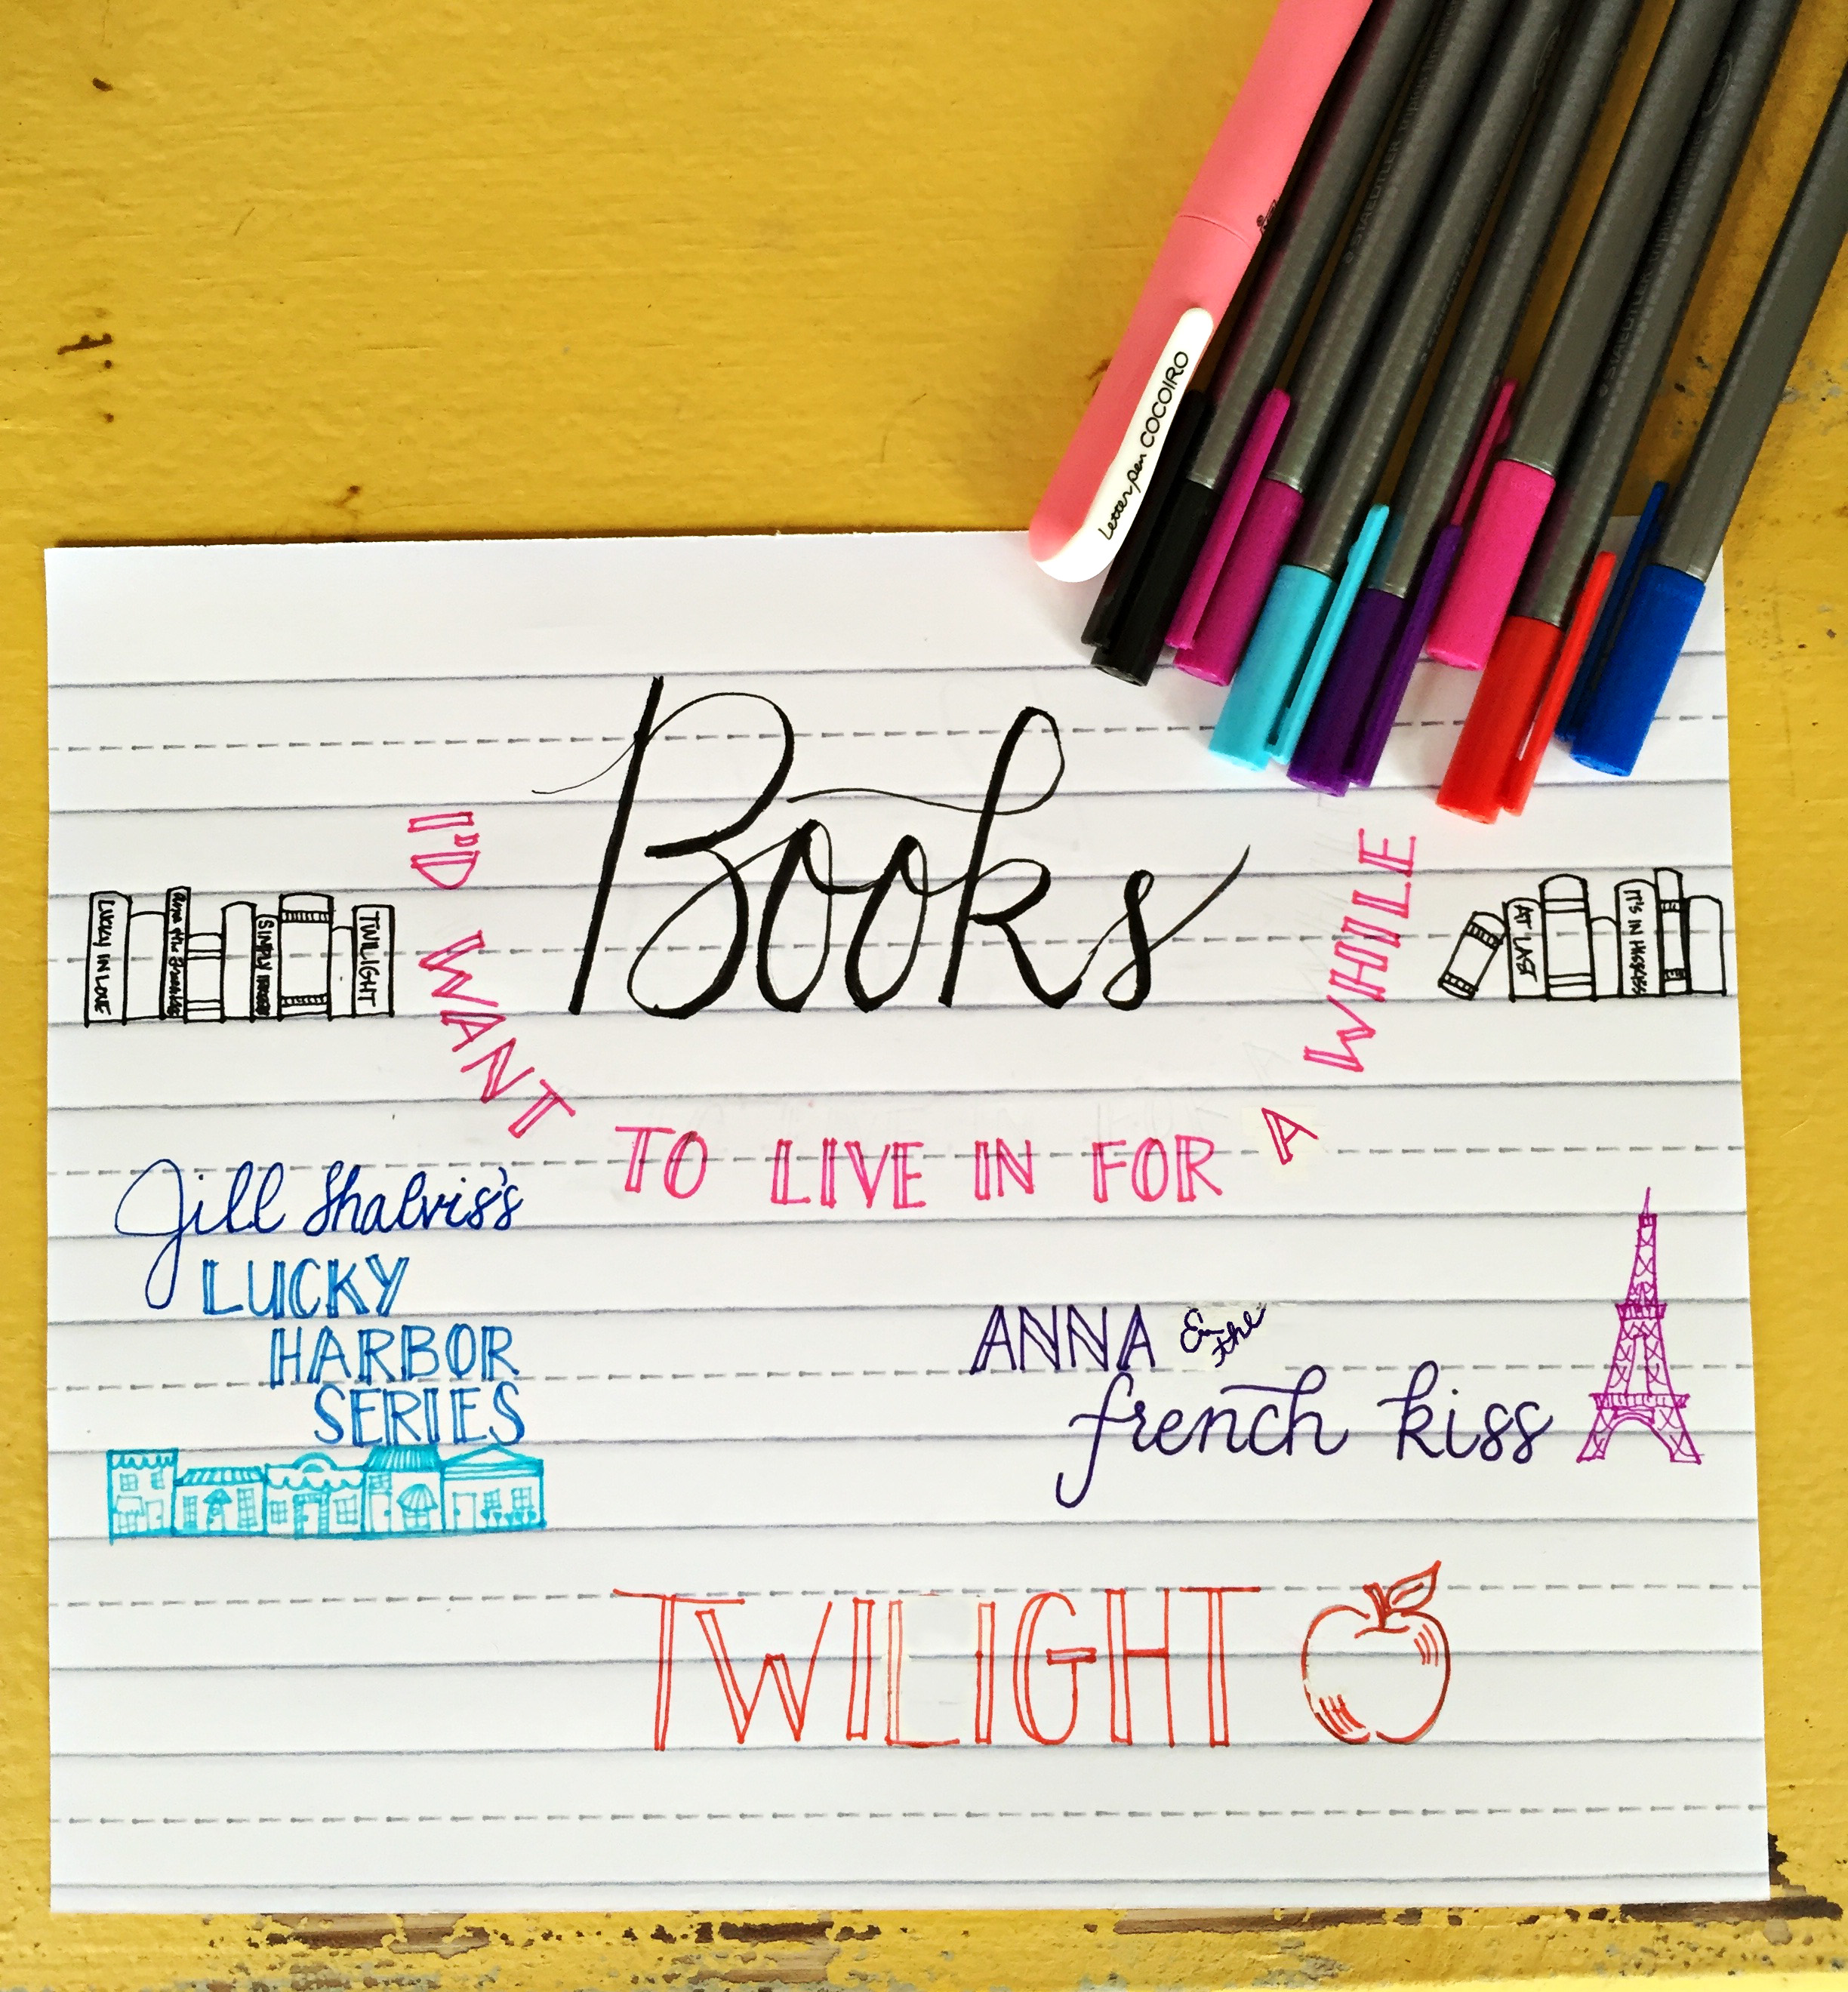 STAEDTLER
STAEDTLER
Letter pen COCOIRO
Books
I'D WANT TO LIVE IN FOR A WHILE
LUCKY IN LOVE
Anna & the French Kiss
SIMPLY
TWILIGHT
AT LAST
IT'S IN HIS KISS
Jill Shalvis's
LUCKY
HARBOR
SERIES
ANNA & the
french kiss
TWILIGHT